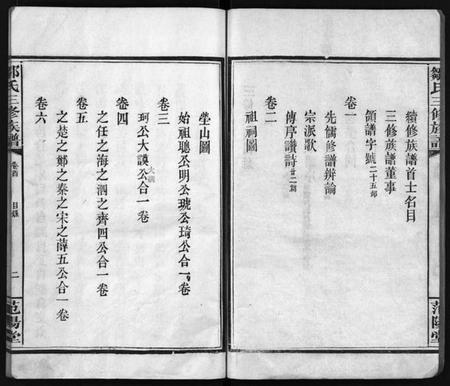 鄒氏三修族譜
范陽堂
續修族譜首士名目
三修族譜董事
領譜字號二十五部
卷一
先儒修譜辨論
宗派歌
傳序讚詩廿二則
卷二
祖祠圖
塋山圖
卷三
始祖聰公明公琥公琦公合一卷
珂公大謨公合一卷
卷四
之任之海之泗之齊四公合一卷
卷五
之楚之鄒之秦之宋之薛五公合一卷
卷六
鄒氏三修族譜
卷首
目錄
二
范陽堂